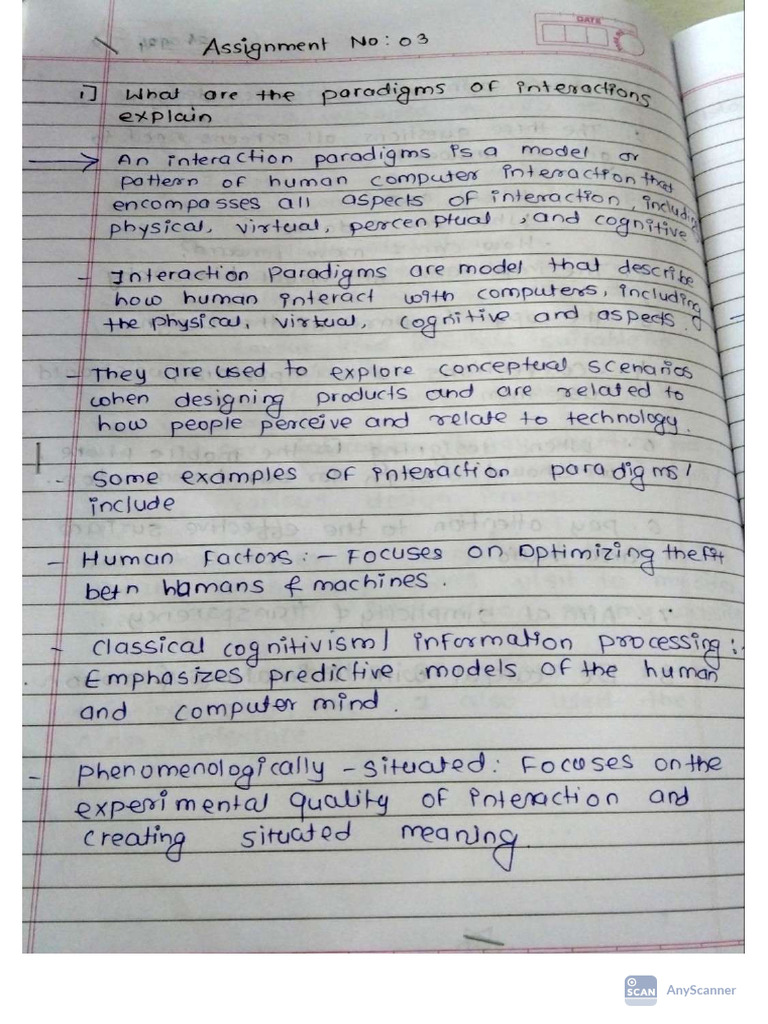 Assignment No: 03
DATE
1] What are the paradigms of interactions
explain
An interaction paradigms is a model or
pattern of human computer interaction that
encompasses all aspects of interaction, including
physical, virtual, percenptual, and cognitive
- Interaction Paradigms are model that describe
how human interact with computers, including
the physical, virtual, cognitive and aspects.
- They are used to explore conceptual scenarios
when designing products and are related to
how people perceive and relate to technology.
- Some examples of interaction paradigms/
include
- Human Factors: - Focuses on Optimizing the fit
betn hamans & machines.
- Classical cognitivism/ information processing:
Emphasizes predictive models of the human
and computer mind.
- Phenomenologically - Situated: Focuses on the
experimental quality of interaction and
creating situated meaning.
SCAN AnyScanner